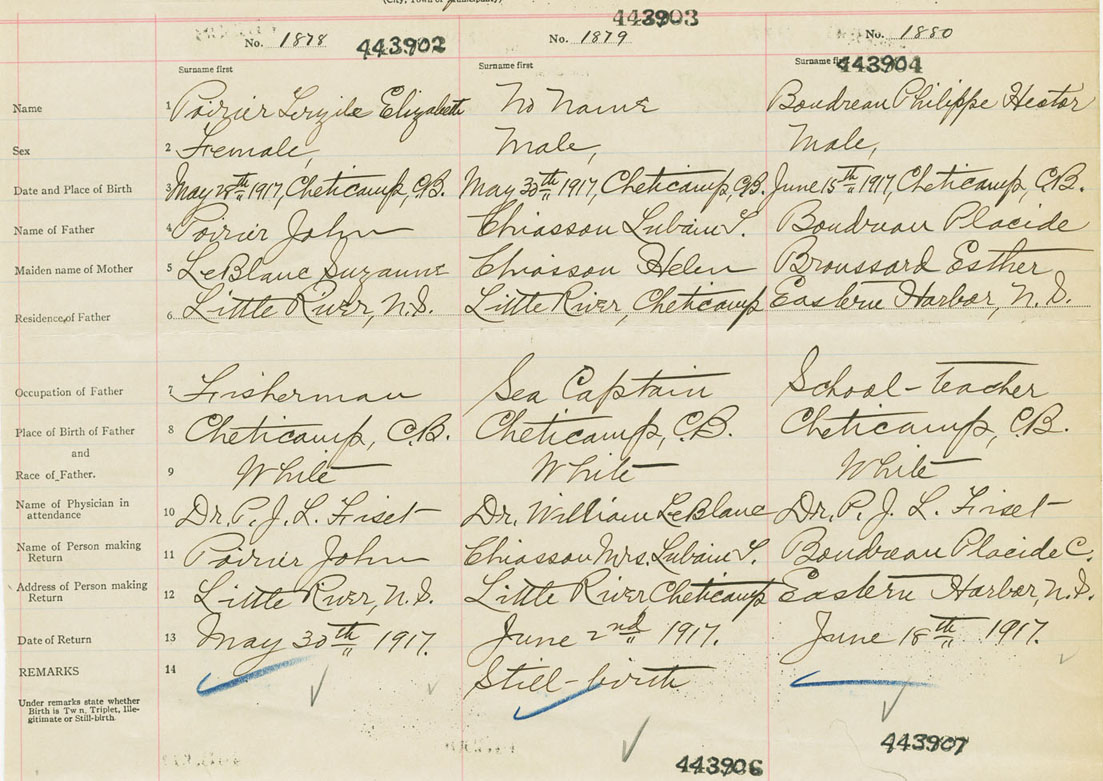 (City, Town or Municipality)
No. 1878 443902 No. 1879 443903 No. 1880
Surname first Surname first Surname first 443904
Name 1 Poirier Lezile Elizabeth No Name Boudreau Philippe Hector
Sex 2 Female, Male, Male,
Date and Place of Birth 3 May 28th 1917, Cheticamp, C.B. May 30th 1917, Cheticamp, C.B. June 15th 1917, Cheticamp, C.B.
Name of Father 4 Poirier John Chiasson Lubain S. Boudreau Placide
Maiden name of Mother 5 LeBlanc Suzanne Chiasson Helen Broussard Esther
Residence of Father 6 Little River, N.S. Little River, Cheticamp Eastern Harbor, N.S.
Occupation of Father 7 Fisherman Sea Captain School-teacher
Place of Birth of Father 8 Cheticamp, C.B. Cheticamp, C.B. Cheticamp, C.B.
and
Race of Father. 9 White White White
Name of Physician in
attendance 10 Dr. P. J. L. Fiset Dr. William LeBlanc Dr. P. J. L. Fiset
Name of Person making
Return 11 Poirier John Chiasson Mrs. Lubain S. Boudreau Placide C.
Address of Person making
Return 12 Little River, N.S. Little River Cheticamp Eastern Harbor, N.S.
Date of Return 13 May 30th 1917. June 2nd 1917. June 18th 1917.
REMARKS 14 Still-birth
Under remarks state whether
Birth is Twin, Triplet, Ille-
gitimate or Still-birth.
443906 443907